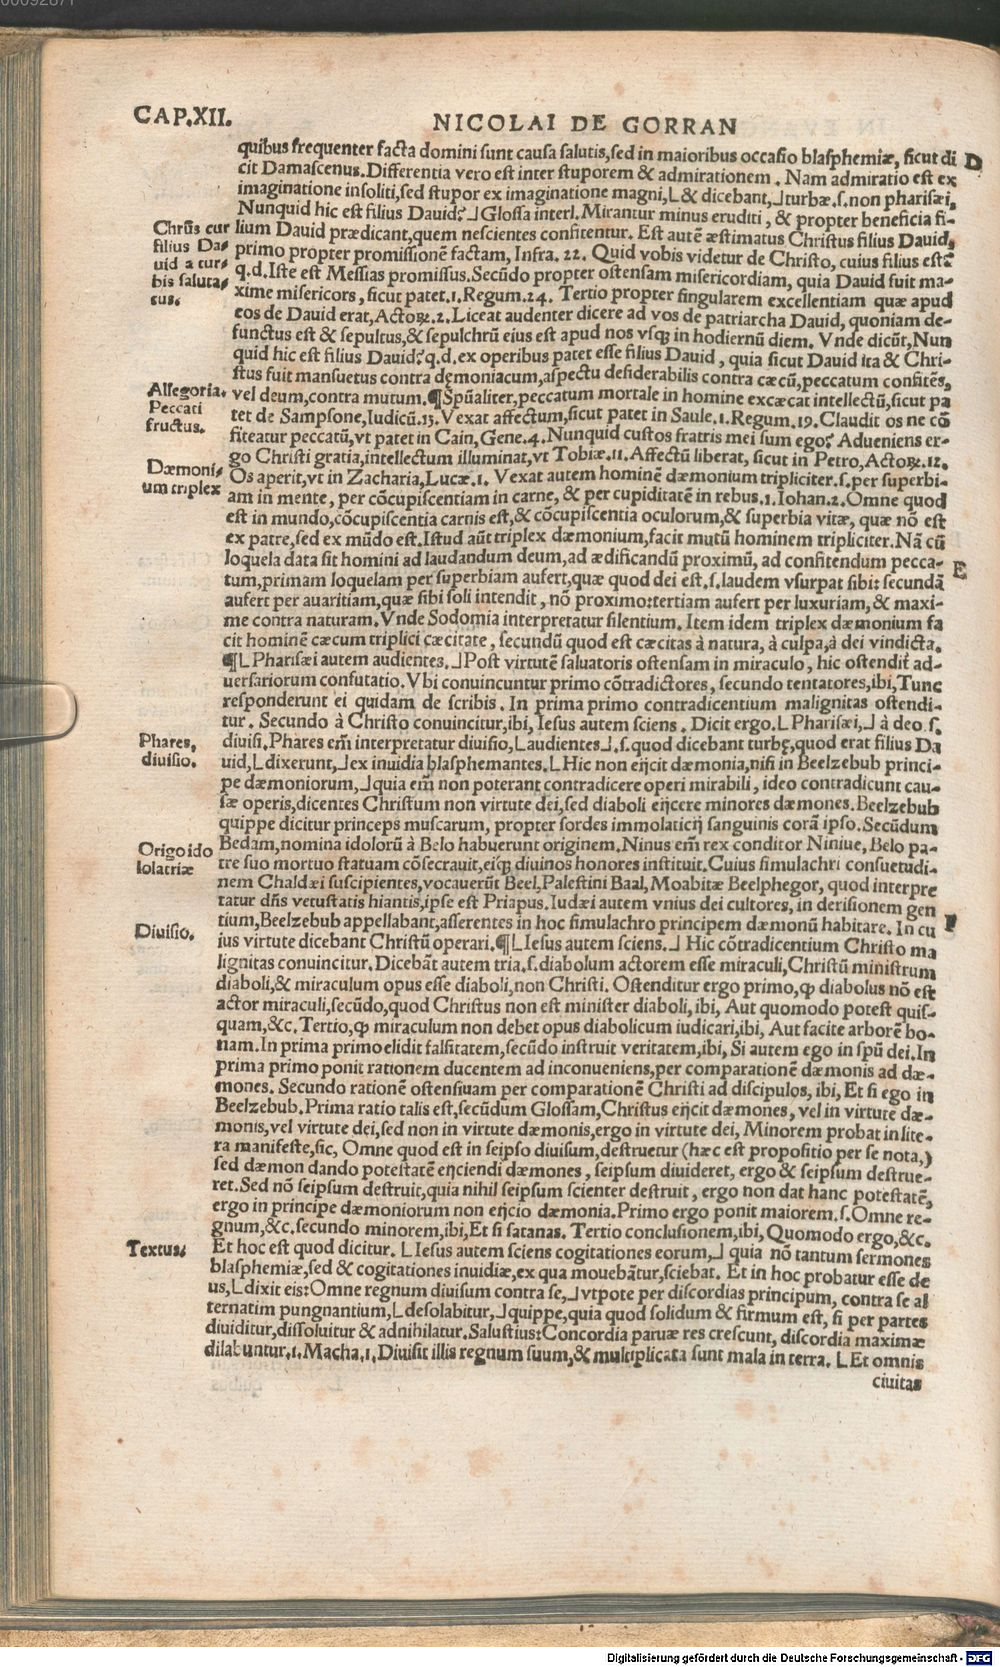 CAP.XII.
NICOLAI DE GORRAN
quibus frequenter facta domini sunt causa salutis, sed in maioribus occasio blasphemiæ, sicut di D
cit Damascenus. Differentia vero est inter stuporem & admirationem. Nam admiratio est ex
imaginatione insoliti, sed stupor ex imaginatione magni, L & dicebant, ⅃ turbæ. s. non pharisæi,
Nunquid hic est filius Dauid? ⅃ Glossa interl. Mirantur minus eruditi, & propter beneficia fi-
Chrūs cur
filius Da-
uid a tur-
bis saluta-
tus.
lium Dauid prædicant, quem nescientes confitentur. Est autē æstimatus Christus filius Dauid,
primo propter promissionē factam, Infra. 22. Quid vobis videtur de Christo, cuius filius est?
q.d. Iste est Messias promissus. Secūdo propter ostensam misericordiam, quia Dauid fuit ma-
xime misericors, sicut patet. 1. Regum. 24. Tertio propter singularem excellentiam quæ apud
eos de Dauid erat, Actoꝝ. 2. Liceat audenter dicere ad vos de patriarcha Dauid, quoniam de-
functus est & sepultus, & sepulchrū eius est apud nos vsqꝫ in hodiernū diem. Vnde dicūt, Nun
quid hic est filius Dauid? q.d. ex operibus patet esse filius Dauid, quia sicut Dauid ita & Chri-
stus fuit mansuetus contra dęmoniacum, aspectu desiderabilis contra cæcū, peccatum confitēs,
Allegoria.
Peccati
fructus.
vel deum, contra mutum. ¶ Spūaliter, peccatum mortale in homine excæcat intellectū, sicut pa
tet de Sampsone, Iudicū. 13. Vexat affectum, sicut patet in Saule. 1. Regum. 19. Claudit os ne cō
fiteatur peccatū, vt patet in Cain, Gene. 4. Nunquid custos fratris mei sum ego? Adueniens er-
go Christi gratia, intellectum illuminat, vt Tobiæ. 11. Affectū liberat, sicut in Petro, Actoꝝ. 12.
Dæmoni-
um triplex
Os aperit, vt in Zacharia, Lucæ. 1. Vexat autem hominē dæmonium tripliciter. s. per superbi-
am in mente, per cōcupiscentiam in carne, & per cupiditatē in rebus. 1. Iohan. 2. Omne quod
est in mundo, cōcupiscentia carnis est, & cōcupiscentia oculorum, & superbia vitæ, quæ nō est
ex patre, sed ex mūdo est. Istud aūt triplex dæmonium, facit mutū hominem tripliciter. Nā cū
loquela data sit homini ad laudandum deum, ad ædificandū proximū, ad confitendum pecca- E
tum, primam loquelam per superbiam aufert, quæ quod dei est. s. laudem vsurpat sibi: secundā
aufert per auaritiam, quæ sibi soli intendit, nō proximo: tertiam aufert per luxuriam, & maxi-
me contra naturam. Vnde Sodomia interpretatur silentium. Item idem triplex dæmonium fa
cit hominē cæcum triplici cæcitate, secundū quod est cæcitas à natura, à culpa, à dei vindicta.
¶ L Pharisæi autem audientes. ⅃ Post virtutē saluatoris ostensam in miraculo, hic ostendit ad-
uersariorum confutatio. Vbi conuincuntur primo cōtradictores, secundo tentatores, ibi, Tunc
responderunt ei quidam de scribis. In prima primo contradicentium malignitas ostendi-
tur. Secundo à Christo conuincitur, ibi, Iesus autem sciens. Dicit ergo. L Pharisæi, ⅃ à deo. s.
Phares,
diuisio.
diuisi. Phares em̄ interpretatur diuisio, L audientes ⅃, s. quod dicebant turbę, quod erat filius Da
uid, L dixerunt, ⅃ ex inuidia blasphemantes. L Hic non eijcit dæmonia, nisi in Beelzebub princi-
pe dæmoniorum, ⅃ quia em̄ non poterant contradicere operi mirabili, ideo contradicunt cau-
sæ operis, dicentes Christum non virtute dei, sed diaboli eijcere minores dæmones. Beelzebub
quippe dicitur princeps muscarum, propter sordes immolaticij sanguinis corā ipso. Secūdum
Origo ido
lolatriæ
Bedam, nomina idolorū à Belo habuerunt originem. Ninus em̄ rex conditor Niniue, Belo pa-
tre suo mortuo statuam cōsecrauit, eiqꝫ diuinos honores instituit. Cuius simulachri consuetudi-
nem Chaldæi suscipientes, vocauerūt Beel, Palestini Baal, Moabitæ Beelphegor, quod interpre
tatur dn̄s vetustatis hiantis, ipse est Priapus. Iudæi autem vnius dei cultores, in derisionem gen
tium, Beelzebub appellabant, asserentes in hoc simulachro principem dæmonū habitare. In cu F
Diuisio.
ius virtute dicebant Christū operari. ¶ L Iesus autem sciens. ⅃ Hic cōtradicentium Christo ma
lignitas conuincitur. Dicebāt autem tria. s. diabolum actorem esse miraculi, Christū ministrum
diaboli, & miraculum opus esse diaboli, non Christi. Ostenditur ergo primo, ꝙ diabolus nō est
actor miraculi, secūdo, quod Christus non est minister diaboli, ibi, Aut quomodo potest quis-
quam, &c. Tertio, ꝙ miraculum non debet opus diabolicum iudicari, ibi, Aut facite arborē bo-
nam. In prima primo elidit falsitatem, secūdo instruit veritatem, ibi, Si autem ego in spū dei. In
prima primo ponit rationem ducentem ad inconueniens, per comparationē dæmonis ad dæ-
mones. Secundo rationē ostensiuam per comparationē Christi ad discipulos, ibi, Et si ego in
Beelzebub. Prima ratio talis est, secūdum Glossam, Christus eijcit dæmones, vel in virtute dæ-
monis, vel virtute dei, sed non in virtute dæmonis, ergo in virtute dei, Minorem probat in lite-
ra manifeste, sic, Omne quod est in seipso diuisum, destruetur (hæc est propositio per se nota,)
sed dæmon dando potestatē eijciendi dæmones, seipsum diuideret, ergo & seipsum destrue-
ret. Sed nō seipsum destruit, quia nihil seipsum scienter destruit, ergo non dat hanc potestatē,
ergo in principe dæmoniorum non eijcio dæmonia. Primo ergo ponit maiorem. s. Omne re-
gnum, &c. secundo minorem, ibi, Et si satanas. Tertio conclusionem, ibi, Quomodo ergo, &c.
Textus.
Et hoc est quod dicitur. L Iesus autem sciens cogitationes eorum, ⅃ quia nō tantum sermones
blasphemiæ, sed & cogitationes inuidiæ, ex qua mouebātur, sciebat. Et in hoc probatur esse de
us, L dixit eis: Omne regnum diuisum contra se, ⅃ vtpote per discordias principum, contra se al
ternatim pungnantium, L desolabitur, ⅃ quippe, quia quod solidum & firmum est, si per partes
diuiditur, dissoluitur & adnihilatur. Salustius: Concordia paruæ res crescunt, discordia maximæ
dilabuntur. 1. Macha. 1. Diuisit illis regnum suum, & multiplicata sunt mala in terra. L Et omnis
ciuitas
Digitalisierung gefördert durch die Deutsche Forschungsgemeinschaft - DFG